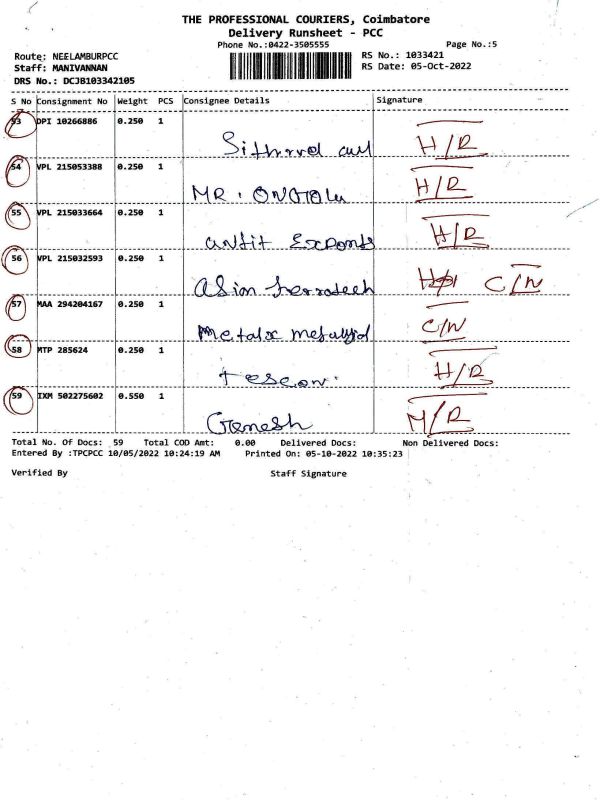 THE PROFESSIONAL COURIERS, Coimbatore
Delivery Runsheet - PCC
Phone No.:0422-3505555 Page No.:5
Route: NEELAMBURPCC RS No.: 1033421
Staff: MANIVANNAN RS Date: 05-Oct-2022
DRS No.: DCJB103342105
S No Consignment No Weight PCS Consignee Details Signature
53 DPI 10266886 0.250 1
H/R
54 VPL 215053388 0.250 1
MR. H/R
55 VPL 215033664 0.250 1
Exports H/R
56 VPL 215032593 0.250 1
Asian C/N
57 MAA 294204167 0.250 1
Metalx C/N
58 MTP 285624 0.250 1
H/R
59 IXM 502275602 0.550 1
Ganesh M/R
Total No. Of Docs: 59 Total COD Amt: 0.00 Delivered Docs: Non Delivered Docs:
Entered By :TPCPCC 10/05/2022 10:24:19 AM Printed On: 05-10-2022 10:35:23
Verified By Staff Signature